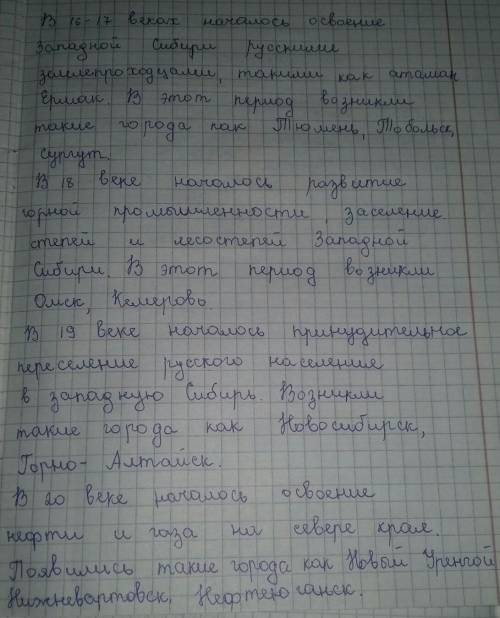 В 16-17 веках началось освоение
Западной Сибири русскими
землепроходцами, такими как атаман
Ермак. В этот период возникли
такие города как Тюмень, Тобольск,
Сургут.
В 18 веке началось развитие
горной промышленности, заселение
степей и лесостепей Западной
Сибири. В этот период возникли
Омск, Кемерово.
В 19 веке началось принудительное
переселение русского население
в западную Сибирь. Возникли
такие города как Новосибирск,
Горно-Алтайск.
В 20 веке началось освоение
нефти и газа на севере края.
Появились такие города как Новый Уренгой
Нижневартовск, Нефтеюганск.